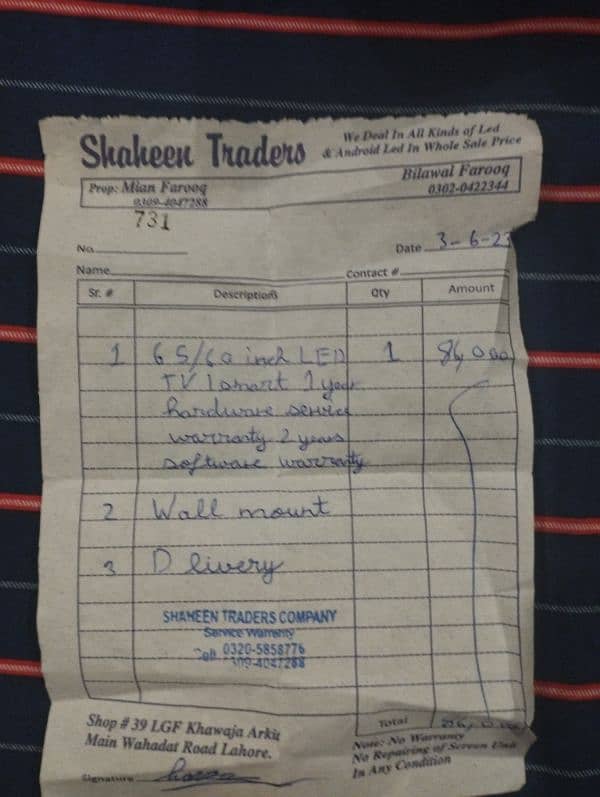 Shaheen Traders
We Deal In All Kinds of Led
& Android Led In Whole Sale Price
Prop: Mian Farooq
0309-4047288
Bilawal Farooq
0302-0422344
731
No.
Date 3-6-23
Name
Contact #
Sr. # Descriptions Qty Amount
1 65/60 inch LED 1 86,000
TV smart 1 year
hardware service
warranty 2 years
software warranty
2 Wall mount
3 Dlivery
SHAHEEN TRADERS COMPANY
Service Warranty
Cell: 0320-5858776
309-4047288
Total
Shop # 39 LGF Khawaja Arkit
Main Wahadat Road Lahore.
Note: No Warranty
No Repairing of Screen Unit
In Any Condition
Signature